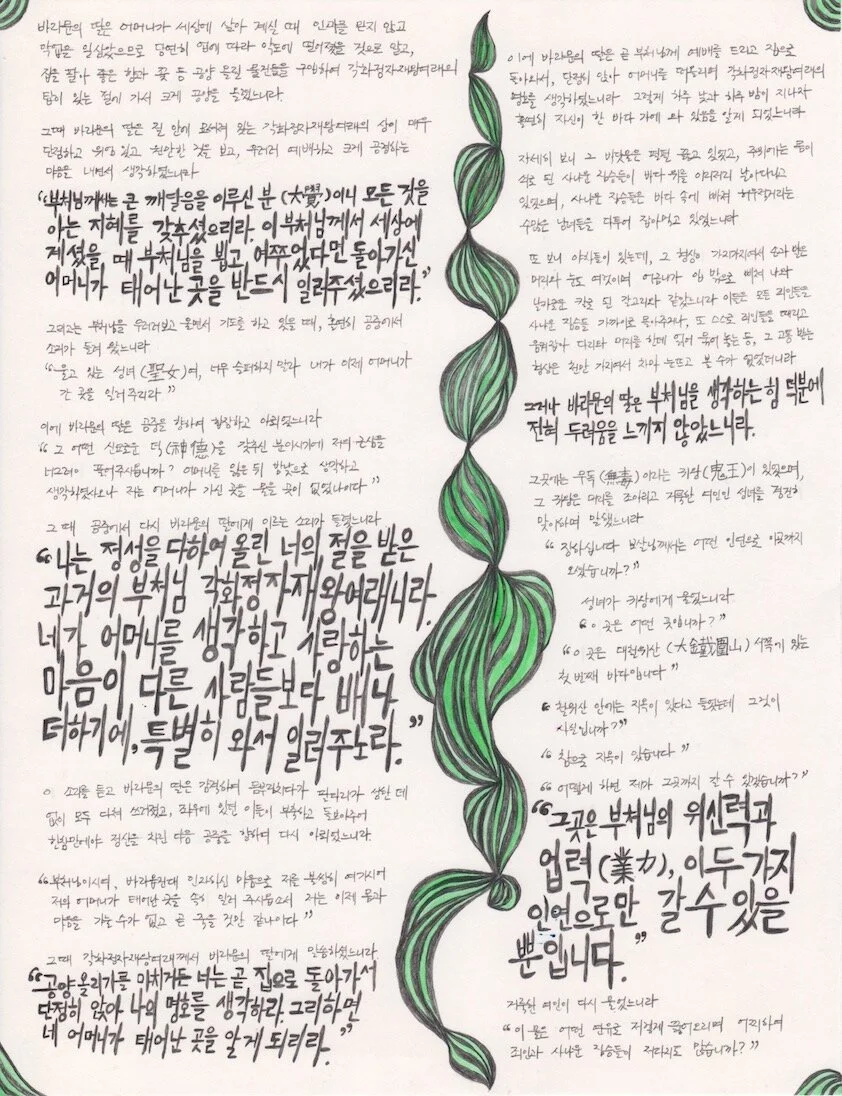 바라문의 딸은 어머니가 세상에 살아 계실 때 인과를 믿지 않고
악업을 일삼았으므로 당연히 업에 따라 악도에 떨어졌을 것으로 알고,
집을 팔아 좋은 향과 꽃 등 공양 올릴 물건들을 구하여 각화정자재왕여래의
탑이 있는 절에 가서 크게 공양을 올렸느니라.
그때 바라문의 딸은 절 안에 모셔져 있는 각화정자재왕여래의 상이 매우
단정하고 위엄 있고 원만한 것을 보고, 우러러 예배하고 크게 공경하는
마음을 내면서 생각하였느니라
“부처님께서는 큰 깨달음을 이루신 분(大覺)이니 모든 것을
아는 지혜를 갖추셨으리라. 이 부처님께서 세상에
계셨을 때 부처님을 뵙고, 여쭈었다면 돌아가신
어머니가 태어난 곳을 반드시 일러주셨으리라.”
그리고는 부처님을 우러러보고 울면서 기도를 하고 있을 때, 홀연히 공중에서
소리가 들려 왔느니라
“울고 있는 성녀(聖女)여, 너무 슬퍼하지 말라 내가 이제 어머니가
간 곳을 일러주리라”
이에 바라문의 딸은 공중을 향하여 합장하고 아뢰었느니라
“그 어떤 신묘로운 덕(神德)을 갖추신 분이시기에 저의 근심을
너그러이 풀어주시옵니까? 어머니를 잃은 뒤 밤낮으로 생각하고
생각하였사오나 저는 어머니가 가신 곳을 물을 곳이 없었나이다”
그 때 공중에서 다시 바라문의 딸에게 이르는 소리가 들렸느니라
“나는 정성을 다하여 올린 너의 절을 받은
과거의 부처님 각화정자재왕여래니라.
네가 어머니를 생각하고 사랑하는
마음이 다른 사람들보다 배나
더하기에, 특별히 와서 일러주노라.”
이 소리를 듣고 바라문의 딸은 감격하여 몸부림치다가 팔다리가 성한 데
없이 모두 다쳐 쓰러졌고, 좌우에 있던 이들이 부축하고 돌보아주어
한참만에야 정신을 차린 다음 공중을 향하여 다시 아뢰었느니라
“부처님이시여, 바라옵건대 인자하신 마음으로 저를 불쌍히 여기시어
저의 어머니가 태어난 곳을 속히 일러 주시옵소서 저는 이제 몸과
마음을 가눌 수가 없고 곧 죽을 것만 같나이다”
그때 각화정자재왕여래께서 바라문의 딸에게 말씀하셨느니라
“공양올리기를 마치거든 너는 곧 집으로 돌아가서
단정히 앉아 나의 명호를 생각하라. 그리하면
네 어머니가 태어난 곳을 알게 되리라.”
이에 바라문의 딸은 곧 부처님께 예배를 드리고 집으로
돌아와서, 단정히 앉아 어머니를 떠올리며 각화정자재왕여래의
명호를 생각하였느니라 그렇게 하루 낮과 하루 밤이 지나자
홀연히 자신이 한 바다 가에 와 있음을 알게 되었느니라
자세히 보니 그 바닷물은 펄펄 끓고 있었고, 주위에는 몸이
쇠로 된 사나운 짐승들이 바다 위를 이리저리 날아다니고
있었으며, 사나운 짐승들은 바다 속에 빠져 허우적거리는
수많은 남녀들을 다투어 잡아먹고 있었느니라
또 보니 야차들이 있는데, 그 형상이 가지가지여서 손과 발은
머리와 눈도 여럿이며 어금니가 입 밖으로 삐져 나와
날카로운 칼로 된 갈고리와 같았느니라 이들은 모든 죄인들을
사나운 짐승들 가까이로 몰아주거나, 또 스스로 죄인들을 때리고
움켜잡아 다리와 머리를 한데 엮어 묶어 놓는 등, 그 고통 받는
형상은 천만 가지여서 차마 눈뜨고 볼 수가 없었더니라
그러나 바라문의 딸은 부처님을 생각하는 힘 덕분에
전혀 두려움을 느끼지 않았느니라.
그곳에는 무독(無毒)이라는 귀왕(鬼王)이 있었으며,
그 귀왕은 머리를 조아리고 거룩한 여인인 성녀를 정중히
맞이하며 말했느니라
“장하십니다 보살님께서는 어떤 인연으로 이곳까지
오셨습니까?”
성녀가 귀왕에게 물었느니라
“이 곳은 어떤 곳입니까?”
“이 곳은 대철위산(大鐵圍山) 서쪽에 있는
첫 번째 바다입니다”
“철위산 안에는 지옥이 있다고 들었는데 그것이
사실입니까?”
“참으로 지옥이 있습니다”
“어떻게 하면 제가 그곳까지 갈 수 있겠습니까?”
“그곳은 부처님의 위신력과
업력(業力), 이 두 가지
인연으로만 갈 수 있을
뿐입니다.”
거룩한 여인이 다시 물었느니라
“이 물은 어떤 연유로 저렇게 끓어오르며 어찌하여
죄인과 사나운 짐승들이 저다지도 많습니까?”